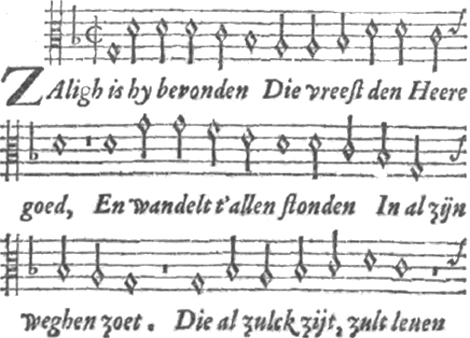 ZAligh is hy bevonden Die vreeſt den Heere
goed, En wandelt t'allen ſtonden In al zijn
weghen zoet. Die al zulck zijt, zult leuen